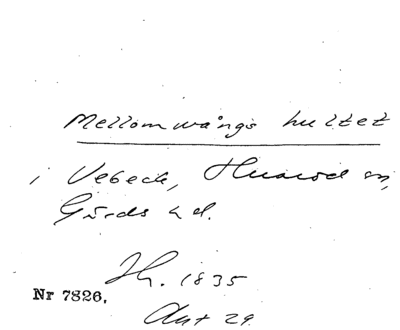 Mellomwångs hultet
i Vebeck, Huaröd sn,
Gärds hd.
Jh. 1835
Nr 7826.
Akt 29